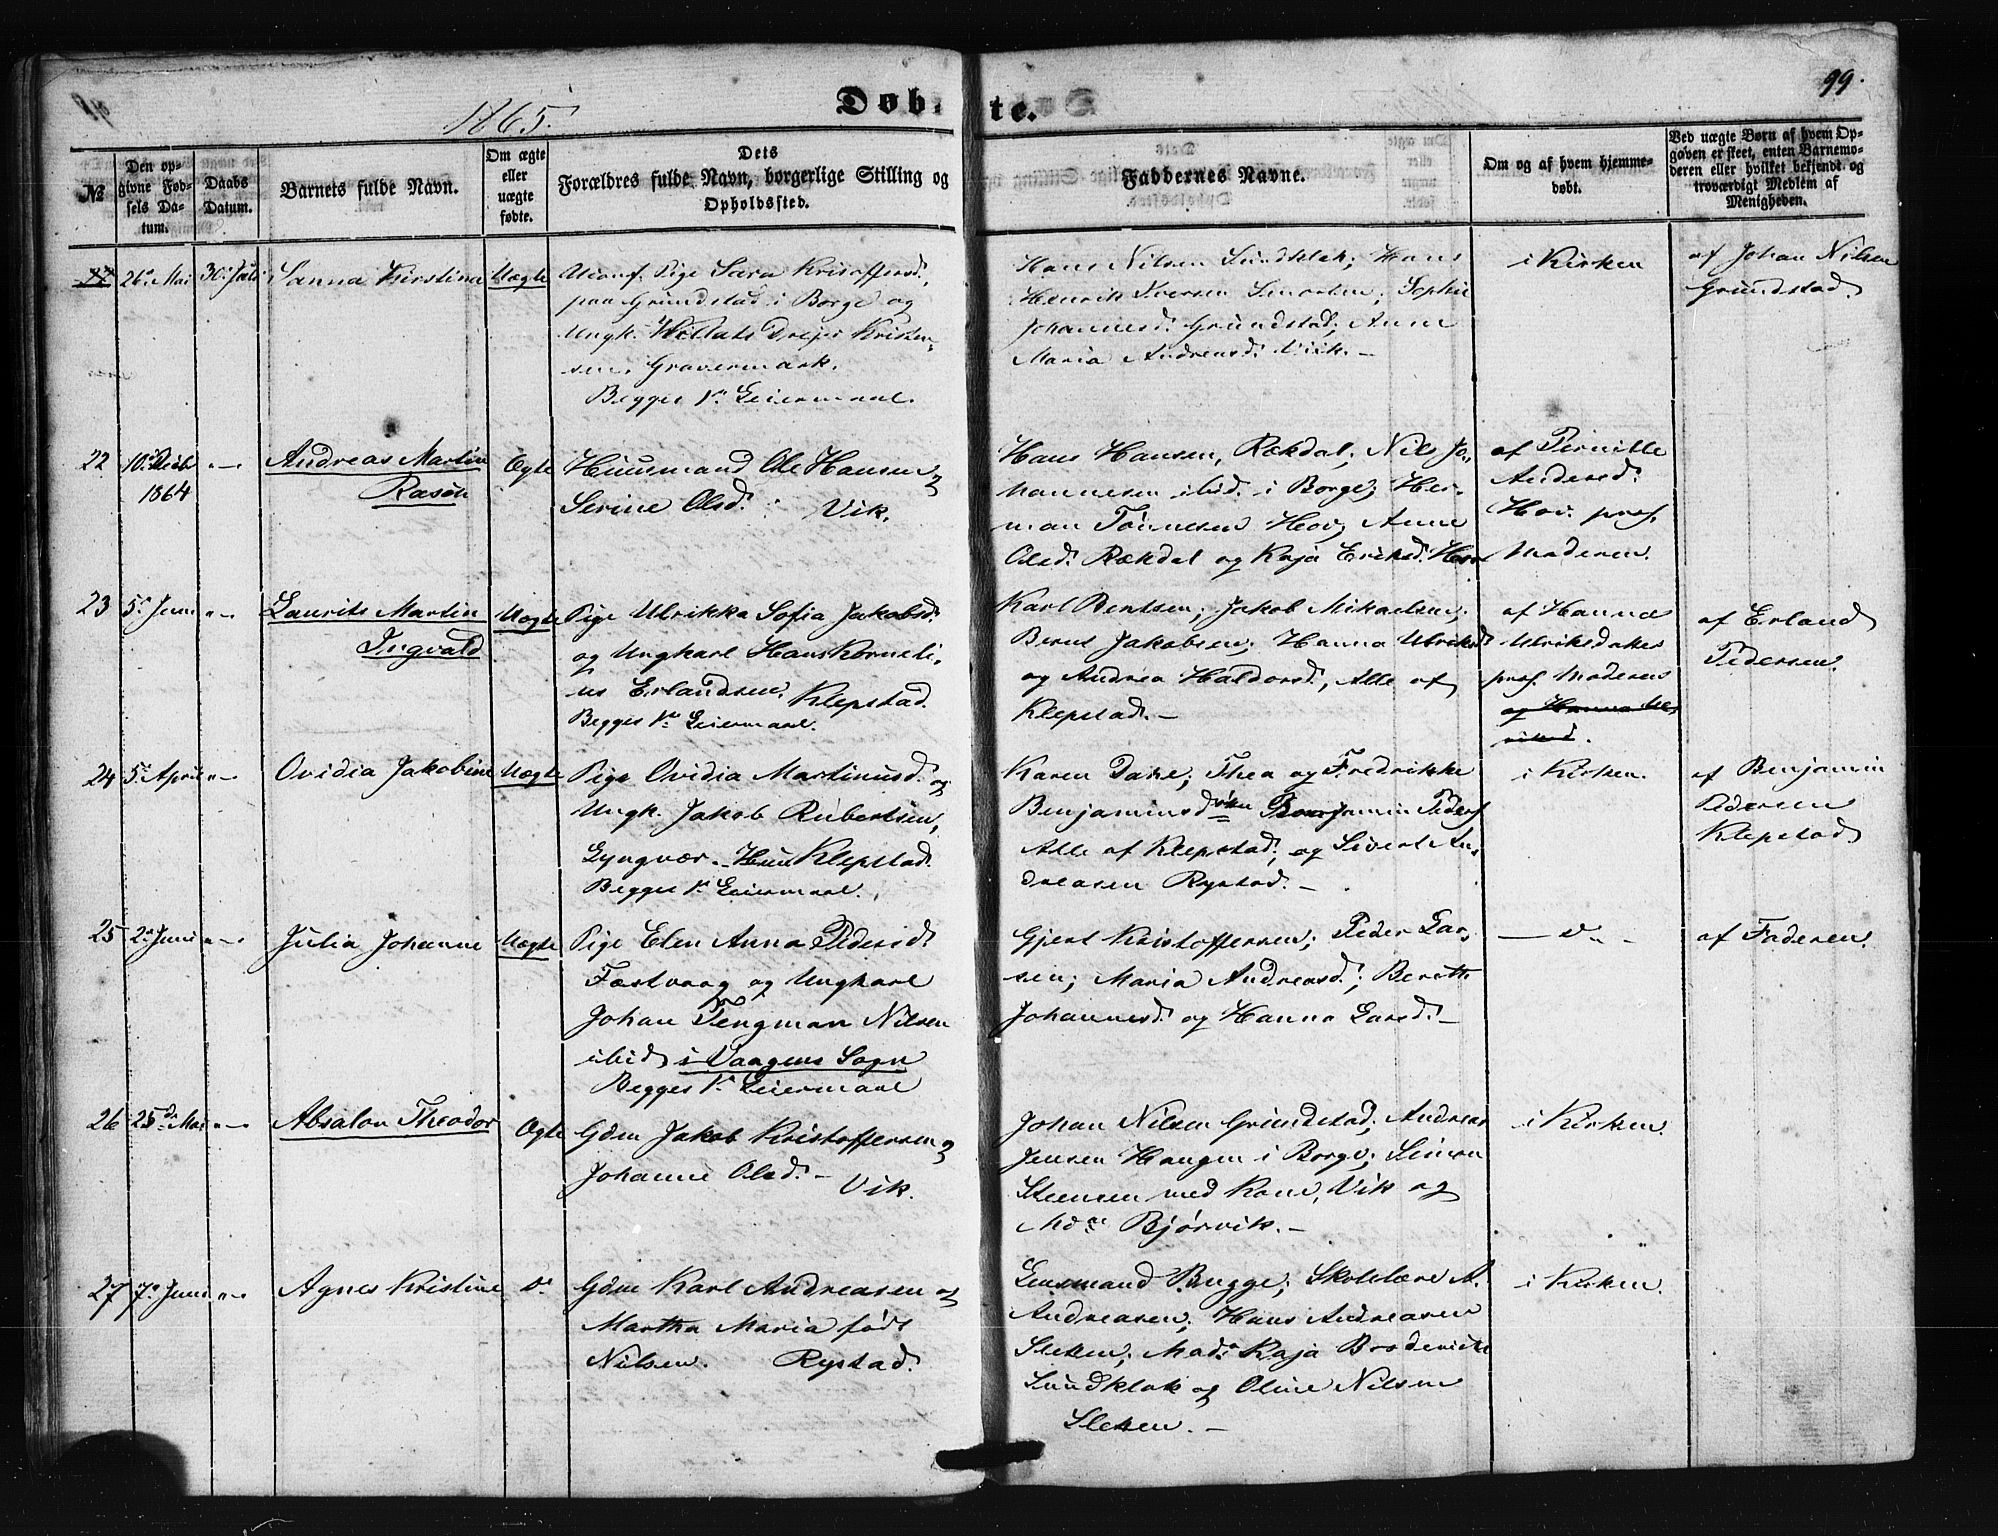 99.
1865.
Døbte.
№
Den opgivne Fødsels Datum.
Daabs Datum.
Barnets fulde Navn.
Om ægte eller uægte fødte.
Dets Forældres fulde Navn, borgerlige Stilling og Opholdssted.
Faddernes Navne.
Om og af hvem hjemmedøbt.
Ved uægte Børn af hvem Opgaven er skeet, enten Barnemoderen eller hvilket bekjendt og troværdigt Medlem af Menigheden.
26. Mai
30. Juli
Sanna Kirstina
Uægte
Uconf. Pige Sara Kristoffersd.
paa Grundstad i Borge og
Ungk. Kristen-
sen, Gravermark.
Begges 1. Leiermaal.
Hans Nilsen Sundklak; Hans
Henrik Iversen Smorten; Sophie
Johannesd. Grundstad; Anne
Maria Andreasd. Vik. –
i Kirken
af Johan Nilsen
Grundstad.
22
10.
1864
"–
Andreas Martin
Ræsøn
Ægte
Huusmand Ole Hansen &
Serine Olsd. Vik.
Hans Hansen, Rækdal; Nils Jo-
hannesen ibid. i Borge; Her-
man Tønnesen Hov; Anne
Olsd. Rækdal og Kaja Eriksd. Hov
af Pernille
Andersd.
Hov. præs.
Moderen.
23
5. Juni
"–
Laurits Martin
Ingvald
Uægte
Pige Ulrikka Sofia Jakobsd.
og Ungkarl Hans Korneli-
us Erlandsen, Klepstad.
Begges 1. Leiermaal.
Karl Bentsen; Jakob Mikaelsen;
Bernt Jakobsen; Hanna Ulriksd.
og Andrea Haldorsd., Alle af
Klepstad. –
af Hanna
Ulriksdatter
præs. Moderen
og Hanna Ul-
riksd.
af Erland
Pedersen.
24
5. April
"–
Ovidia Jakobine
Uægte
Pige Ovidia Martinusd. og
Ungk. Jakob Rubertsen,
Gyngvær. – Hun Klepstad.
Begges 1. Leiermaal.
Karen Dane; Thea og Fredrikke
Benjaminsd. Benjamin Peders.
Alle af Klepstad; og Sivert An-
dreasen Rystad. –
i Kirken.
af Benjamin
Pedersen
Klepstad
25
2. Juni
"–
Julia Johanne
Uægte
Pige Elen Anna Pedersd.
Festvaag og Ungkarl
Johan Tengman Nilsen
ibid i Vaagens Sogn
Begges 1. Leiermaal
Gjert Kristoffersen; Peder Lar-
sen; Maria Andreasd.; Berette
Johannesd. og Hanna Larsd. –
– d. –
af Faderen.
26
25. Mai
"–
Absalon Theodor
Ægte
Gdm Jakob Kristoffersen &
Johanne Olsd. –
Vik.
Johan Nilsen Grundstad; Andreas
Jensen Haugen i Borge; Simon
Steensen med Kone, Vik og
Mdm Bjørvik. –
i Kirken.
27
7. Juni
"–
Agnes Kristine
d.
Gdm Karl Andreasen og
Martha Maria født
Nilsen. Rystad.
Lensmand Bugge; Skolelære A.
Andreasen; Hans Andreasen
Sletten; Mad. Kaja Broderick
Sundklak og Oline Nilsen
Sletten. –
i Kirken.